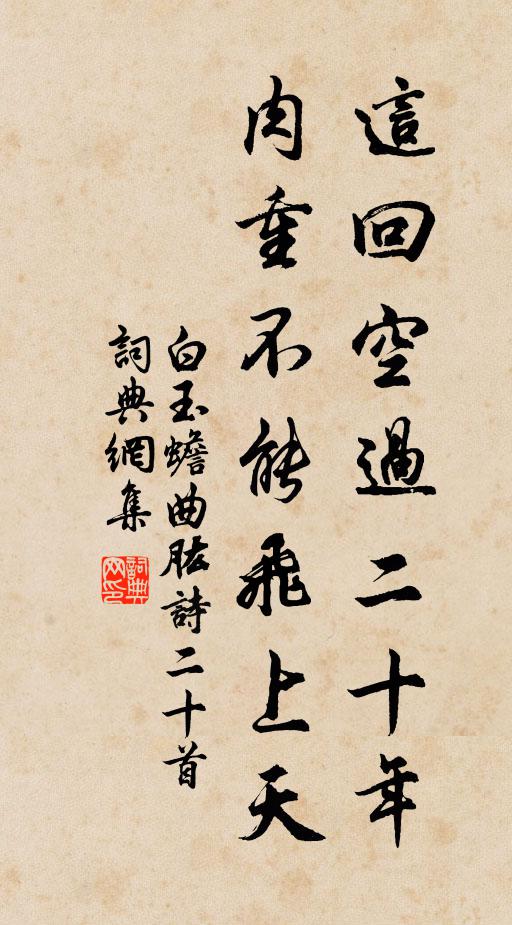 這回空過二十年
肉重不能飛上天
白玉蟾曲肱詩二十首
詞典網集
詞典網印